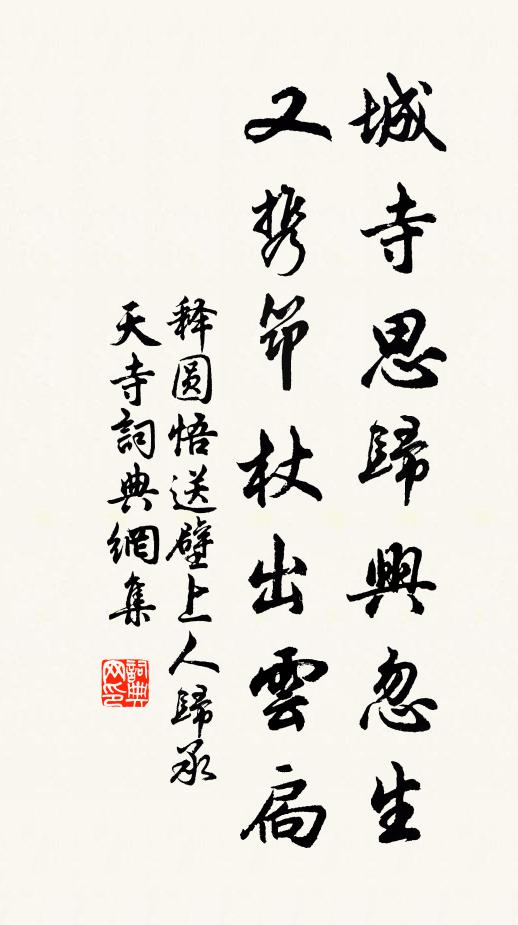 城寺思歸興忽生
又携笻杖出雲扃
释圆悟送壁上人歸承
天寺詞典網集
詞典网印